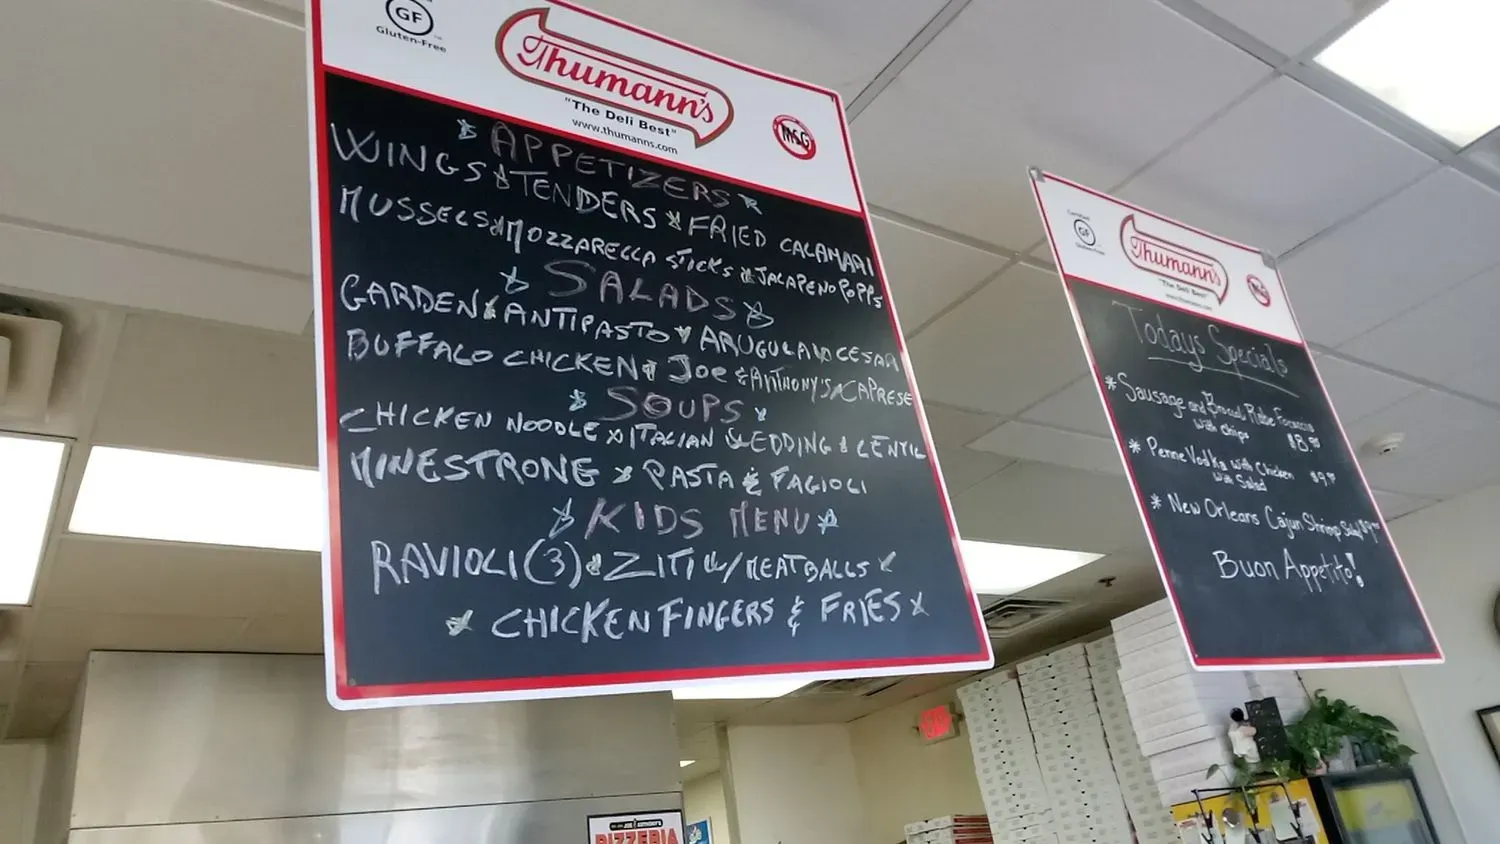 GF
Gluten-Free
Thumann's
"The Deli Best"
www.thumanns.com
MSG
APPETIZERS
WINGS & TENDERS & FRIED CALAMARI
MUSSELS & MOZZARELLA STICKS & JALAPENO POPPS
SALADS
GARDEN & ANTIPASTO & ARUGULA & CESAR
BUFFALO CHICKEN & JOE & ANTHONY'S CAPRESE
SOUPS
CHICKEN NOODLE & ITALIAN WEDDING & LENTIL
MINESTRONE & PASTA & FAGIOLI
KIDS MENU
RAVIOLI (3) & ZITI W/MEATBALLS
CHICKEN FINGERS & FRIES
Certified
GF
Gluten-Free
Thumann's
"The Deli Best"
www.thumanns.com
MSG
Todays Specials
* Sausage and Broccoli Rabe Focaccia
with chips $8.
* Penne Vodka with Chicken
with Salad $9.
* New Orleans Cajun Shrimp Salad $9.
Buon Appetito!
JOE & ANTHONY'S
PIZZERIA